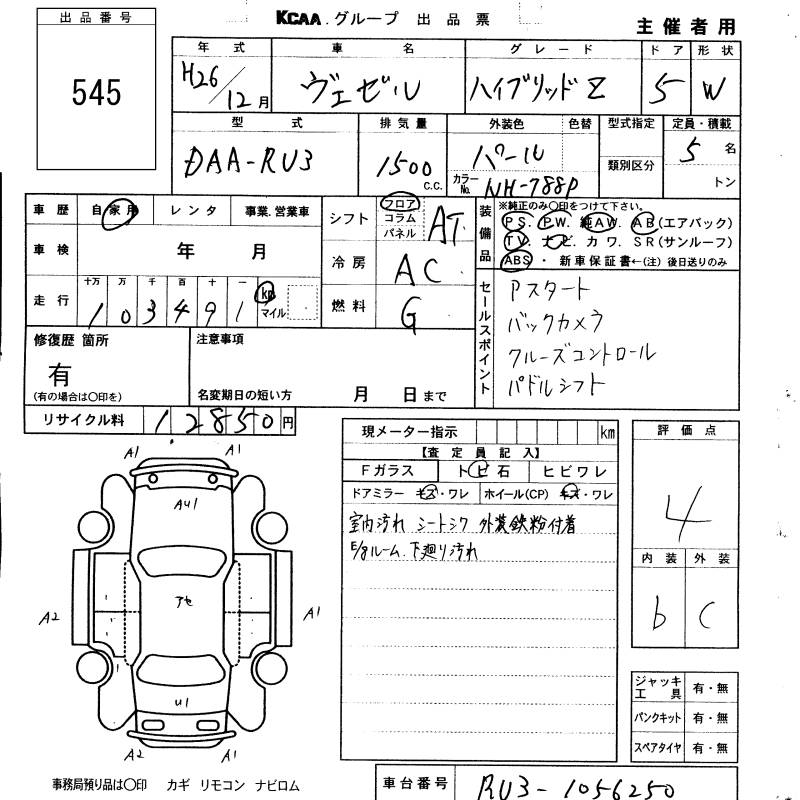 出品番号
545
KCAA グループ 出品票
主催者用
年式 車名 グレード ドア 形状
H26/12月 ヴェゼル ハイブリッドZ 5 W
型式 排気量 外装色 色替 型式指定 定員・積載
DAA-RU3 1500 c.c. パール 類別区分 5名
カラーNo. NH-788P トン
車歴 自家用 レンタ 事業.営業車
車検 年 月
走行 十万 万 千 百 十 一
103491 km マイル
シフト フロア コラム パネル AT
冷房 AC
燃料 G
装備品
※純正のみ○印をつけて下さい。
PS. PW. 純AW. AB(エアバック)
TV. ナビ. カワ. SR(サンルーフ)
ABS・ 新車保証書←(注) 後日送りのみ
セールスポイント
Pスタート
バックカメラ
クルーズコントロール
パドルシフト
修復歴 箇所
有
(有の場合は○印を)
注意事項
名変期日の短い方 月 日まで
リサイクル料 12850円
A1 A1
AU1
アセ
A2 A1
U1
A2 A1
事務局預り品は○印 カギ リモコン ナビロム
現メーター指示 km
【査定員記入】
Fガラス トビ石 ヒビワレ
ドアミラー キズ・ワレ ホイール(CP) キズ・ワレ
室内汚れ シートシワ 外装鉄粉付着
E/gルーム.下廻り汚れ
評価点
4
内装 外装
b C
ジャッキ工具 有・無
パンクキット 有・無
スペアタイヤ 有・無
車台番号 RU3-1056250